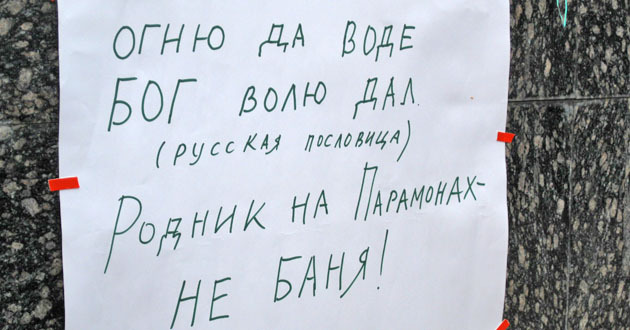 ОГНЮ ДА ВОДЕ
БОГ ВОЛЮ ДАЛ.
(РУССКАЯ ПОСЛОВИЦА)
РОДНИК НА ПАРАМОНАХ-
НЕ БАНЯ!